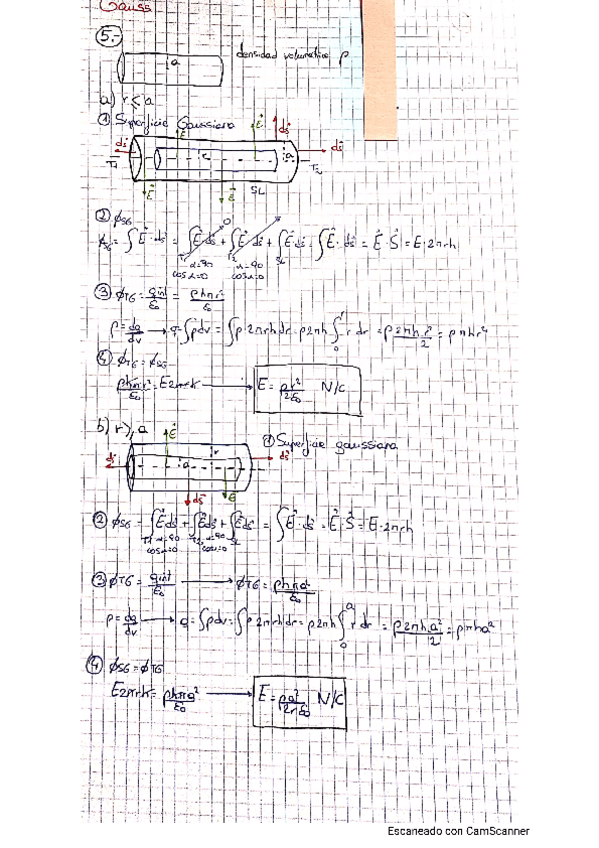 Gauss
5.-
a
densidad volumétrica ρ
a) r ≤ a
① Superficie Gaussiana
E⃗ ds⃗
ds⃗ r a ds⃗
T1 T2
E⃗ E⃗ SL
② ϕSG
ϕSG = ∫E⃗·ds⃗ = ∫E⃗ds⃗ + ∫E⃗ds⃗ + ∫E⃗ds⃗ = ∫E⃗·ds⃗ = E⃗·S⃗ = E·2πrh
T1 α=90 T2 α=90 SL
cosα=0 cosα=0
③ ϕTG = qint/ε0 = ρhπr²/ε0
ρ = dq/dv → q = ∫ρdv = ∫ρ2πrhdr = ρ2πh∫₀ʳ r dr = ρ2πhr²/2 = ρπhr²
④ ϕTG = ϕSG
ρhπr²/ε0 = E2πrh → E = ρr²/2ε0 N/C
b) r ≥ a
① Superficie gaussiana
E⃗
ds⃗ a r ds⃗
ds⃗ E⃗
② ϕSG = ∫E⃗ds⃗ + ∫E⃗ds⃗ + ∫E⃗ds⃗ = ∫E⃗·ds⃗ = E⃗·S⃗ = E·2πrh
T1 α=90 T2 α=90 SL
cosα=0 cosα=0
③ ϕTG = qint/ε0 → ϕTG = ρhπa²/ε0
ρ = dq/dv → q = ∫ρdv = ∫ρ2πrhdr = ρ2πh∫₀ᵃ r dr = ρ2πha²/2 = ρπha²
④ ϕSG = ϕTG
E2πrh = ρhπa²/ε0 → E = ρa²/2rε0 N/C
Escaneado con CamScanner